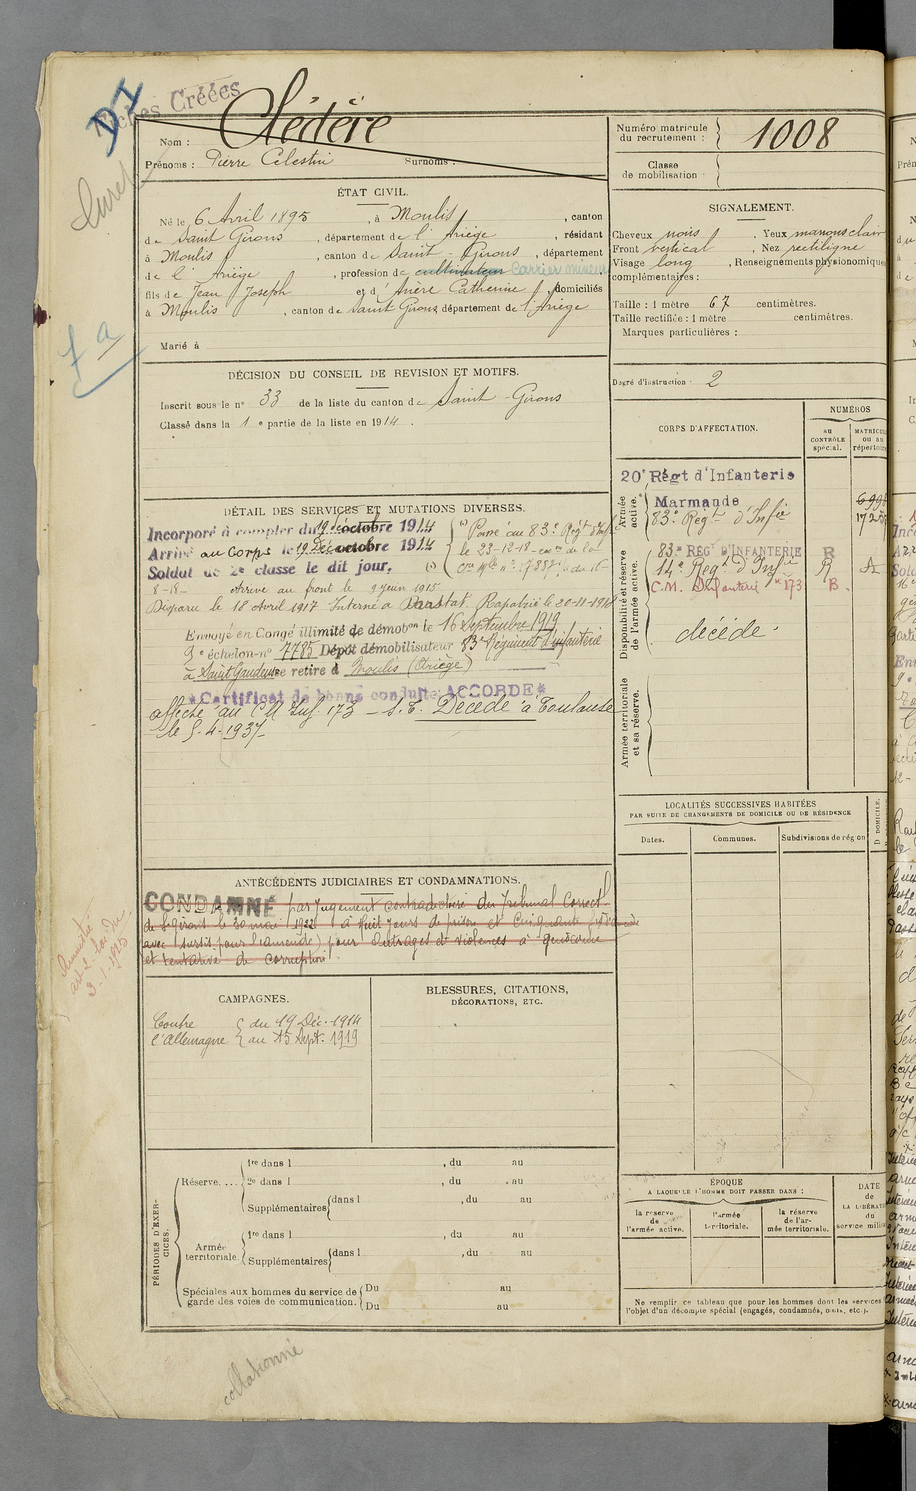 Fiches Créées
DI
Clédère
Nom :
Prénoms : Pierre Célestin Surnoms :
Numéro matricule du recrutement : 1008
Classe de mobilisation :
ÉTAT CIVIL.
Né le 6 Avril 1895, à Moulis, canton
de Saint Girons, département de l'Ariège, résidant
à Moulis, canton de Saint-Girons, département
de l'Ariège, profession de cultivateur Carrier mineur
fils de Jean Joseph et d' Anère Catherine domiciliés
à Moulis, canton de Saint Girons département de l'Ariège
Marié à
SIGNALEMENT.
Cheveux noirs. Yeux marrons clair
Front vertical, Nez rectiligne
Visage long, Renseignements physionomiques
complémentaires :
Taille : 1 mètre 67 centimètres.
Taille rectifiée : 1 mètre centimètres.
Marques particulières :
Degré d'instruction : 2
DÉCISION DU CONSEIL DE REVISION ET MOTIFS.
Inscrit sous le n° 33 de la liste du canton de Saint-Girons
Classé dans la 1e partie de la liste en 1914.
CORPS D'AFFECTATION.
NUMÉROS
AU CONTRÔLE spécial.
MATRICULE ou au répertoire
Armée active.
20e Régt d'Infanterie
Marmande
83e Régt d'Infie
Disponibilité et réserve de l'armée active.
83e REG' D'INFANTERIE R
14e Régt d'Infie R
C.M. Infanterie n° 173 B.
décédé.
Armée territoriale et sa réserve.
DÉTAIL DES SERVICES ET MUTATIONS DIVERSES.
Incorporé à compter du 19 Déc octobre 1914
Arrivé au Corps le 19 Déc octobre 1914
Soldat de 2e classe le dit jour,
(1) Passé au 83e Régt d'Inf
le 23-12-18
8-18- Arrivé au front le 9 juin 1915
Disparu le 18 Avril 1917 Interné à Rastat. Rapatrié le 20-11-1918
Envoyé en Congé illimité de démobon le 16 Septembre 1919
9e échelon-n° 7785 Dépôt démobilisateur 83e Régiment d'infanterie
à Saint Gaudens se retire à Moulis (Ariège)
*Certificat de bonne conduite ACCORDÉ*
affecté au CM Inf. 173 - S.E. Décédé à Toulouse
le 5.4.1937
LOCALITÉS SUCCESSIVES HABITÉES
PAR SUITE DE CHANGEMENTS DE DOMICILE OU DE RÉSIDENCE
Dates.
Communes.
Subdivisions de région
D. DOMICILE.
ANTÉCÉDENTS JUDICIAIRES ET CONDAMNATIONS.
CONDAMNÉ par Jugement contradictoire du Tribunal Correctl
de St Girons le 30 mai 1922 à huit Jours de prison et Cinquante frs d'amende
avec (sursis pour l'amende) pour Outrages et violences à gendarme
et tentative de corruption.
Amnistié
art 2 loi du
3.1.1925
CAMPAGNES.
Contre l'Allemagne { du 19 Déc. 1914
au 15 Sept. 1919
BLESSURES, CITATIONS,
DÉCORATIONS, ETC.
PÉRIODES D'EXERCICES.
Réserve....
1re dans l , du au
2e dans l , du au
Supplémentaires {dans l , du au
Armée territoriale.
1re dans l , du au
Supplémentaires {dans l , du au
Spéciales aux hommes du service de garde des voies de communication.
Du au
Du au
ÉPOQUE
A LAQUELLE L'HOMME DOIT PASSER DANS :
la réserve de l'armée active.
l'armée territoriale.
la réserve de l'armée territoriale.
DATE de LA LIBÉRAT du service milit
Ne remplir ce tableau que pour les hommes dont les services
l'objet d'un décompte spécial (engagés, condamnés, omis, etc.).
collationné